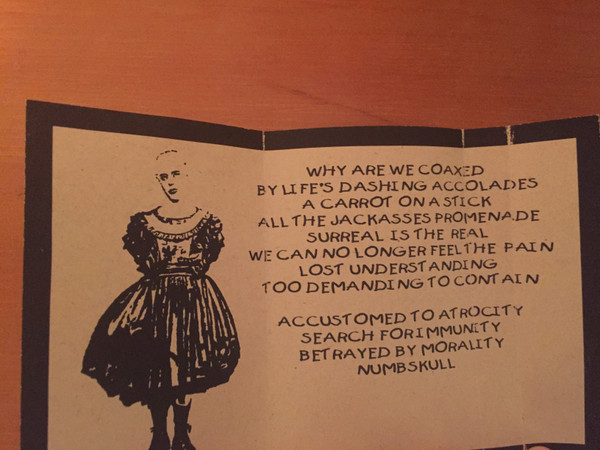 WHY ARE WE COAXED
BY LIFE'S DASHING ACCOLADES
A CARROT ON A STICK
ALL THE JACKASSES PROMENADE
SURREAL IS THE REAL
WE CAN NO LONGER FEEL THE PAIN
LOST UNDERSTANDING
TOO DEMANDING TO CONTAIN
ACCUSTOMED TO ATROCITY
SEARCH FOR IMMUNITY
BETRAYED BY MORALITY
NUMBSKULL